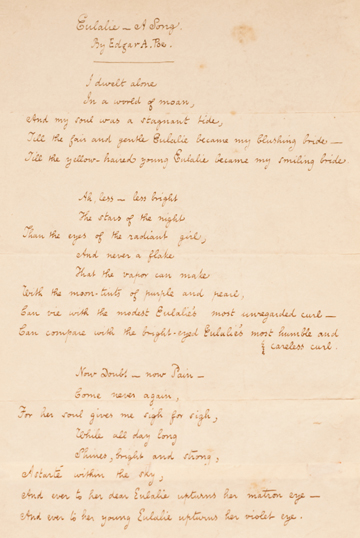 Eulalie — A Song.
By Edgar A. Poe.
I dwelt alone
In a world of moan,
And my soul was a stagnant tide,
Till the fair and gentle Eulalie became my blushing bride —
Till the yellow-haired young Eulalie became my smiling bride
Ah, less — less bright
The stars of the night
Than the eyes of the radiant girl,
And never a flake
That the vapor can make
With the moon-tints of purple and pearl,
Can vie with the modest Eulalie's most unregarded curl —
Can compare with the bright-eyed Eulalie's most humble and
& careless curl.
Now Doubt — now Pain —
Come never again,
For her soul gives me sigh for sigh,
While all day long
Shines, bright and strong,
Astarté within the sky,
And ever to her dear Eulalie upturns her matron eye —
And ever to her young Eulalie upturns her violet eye.